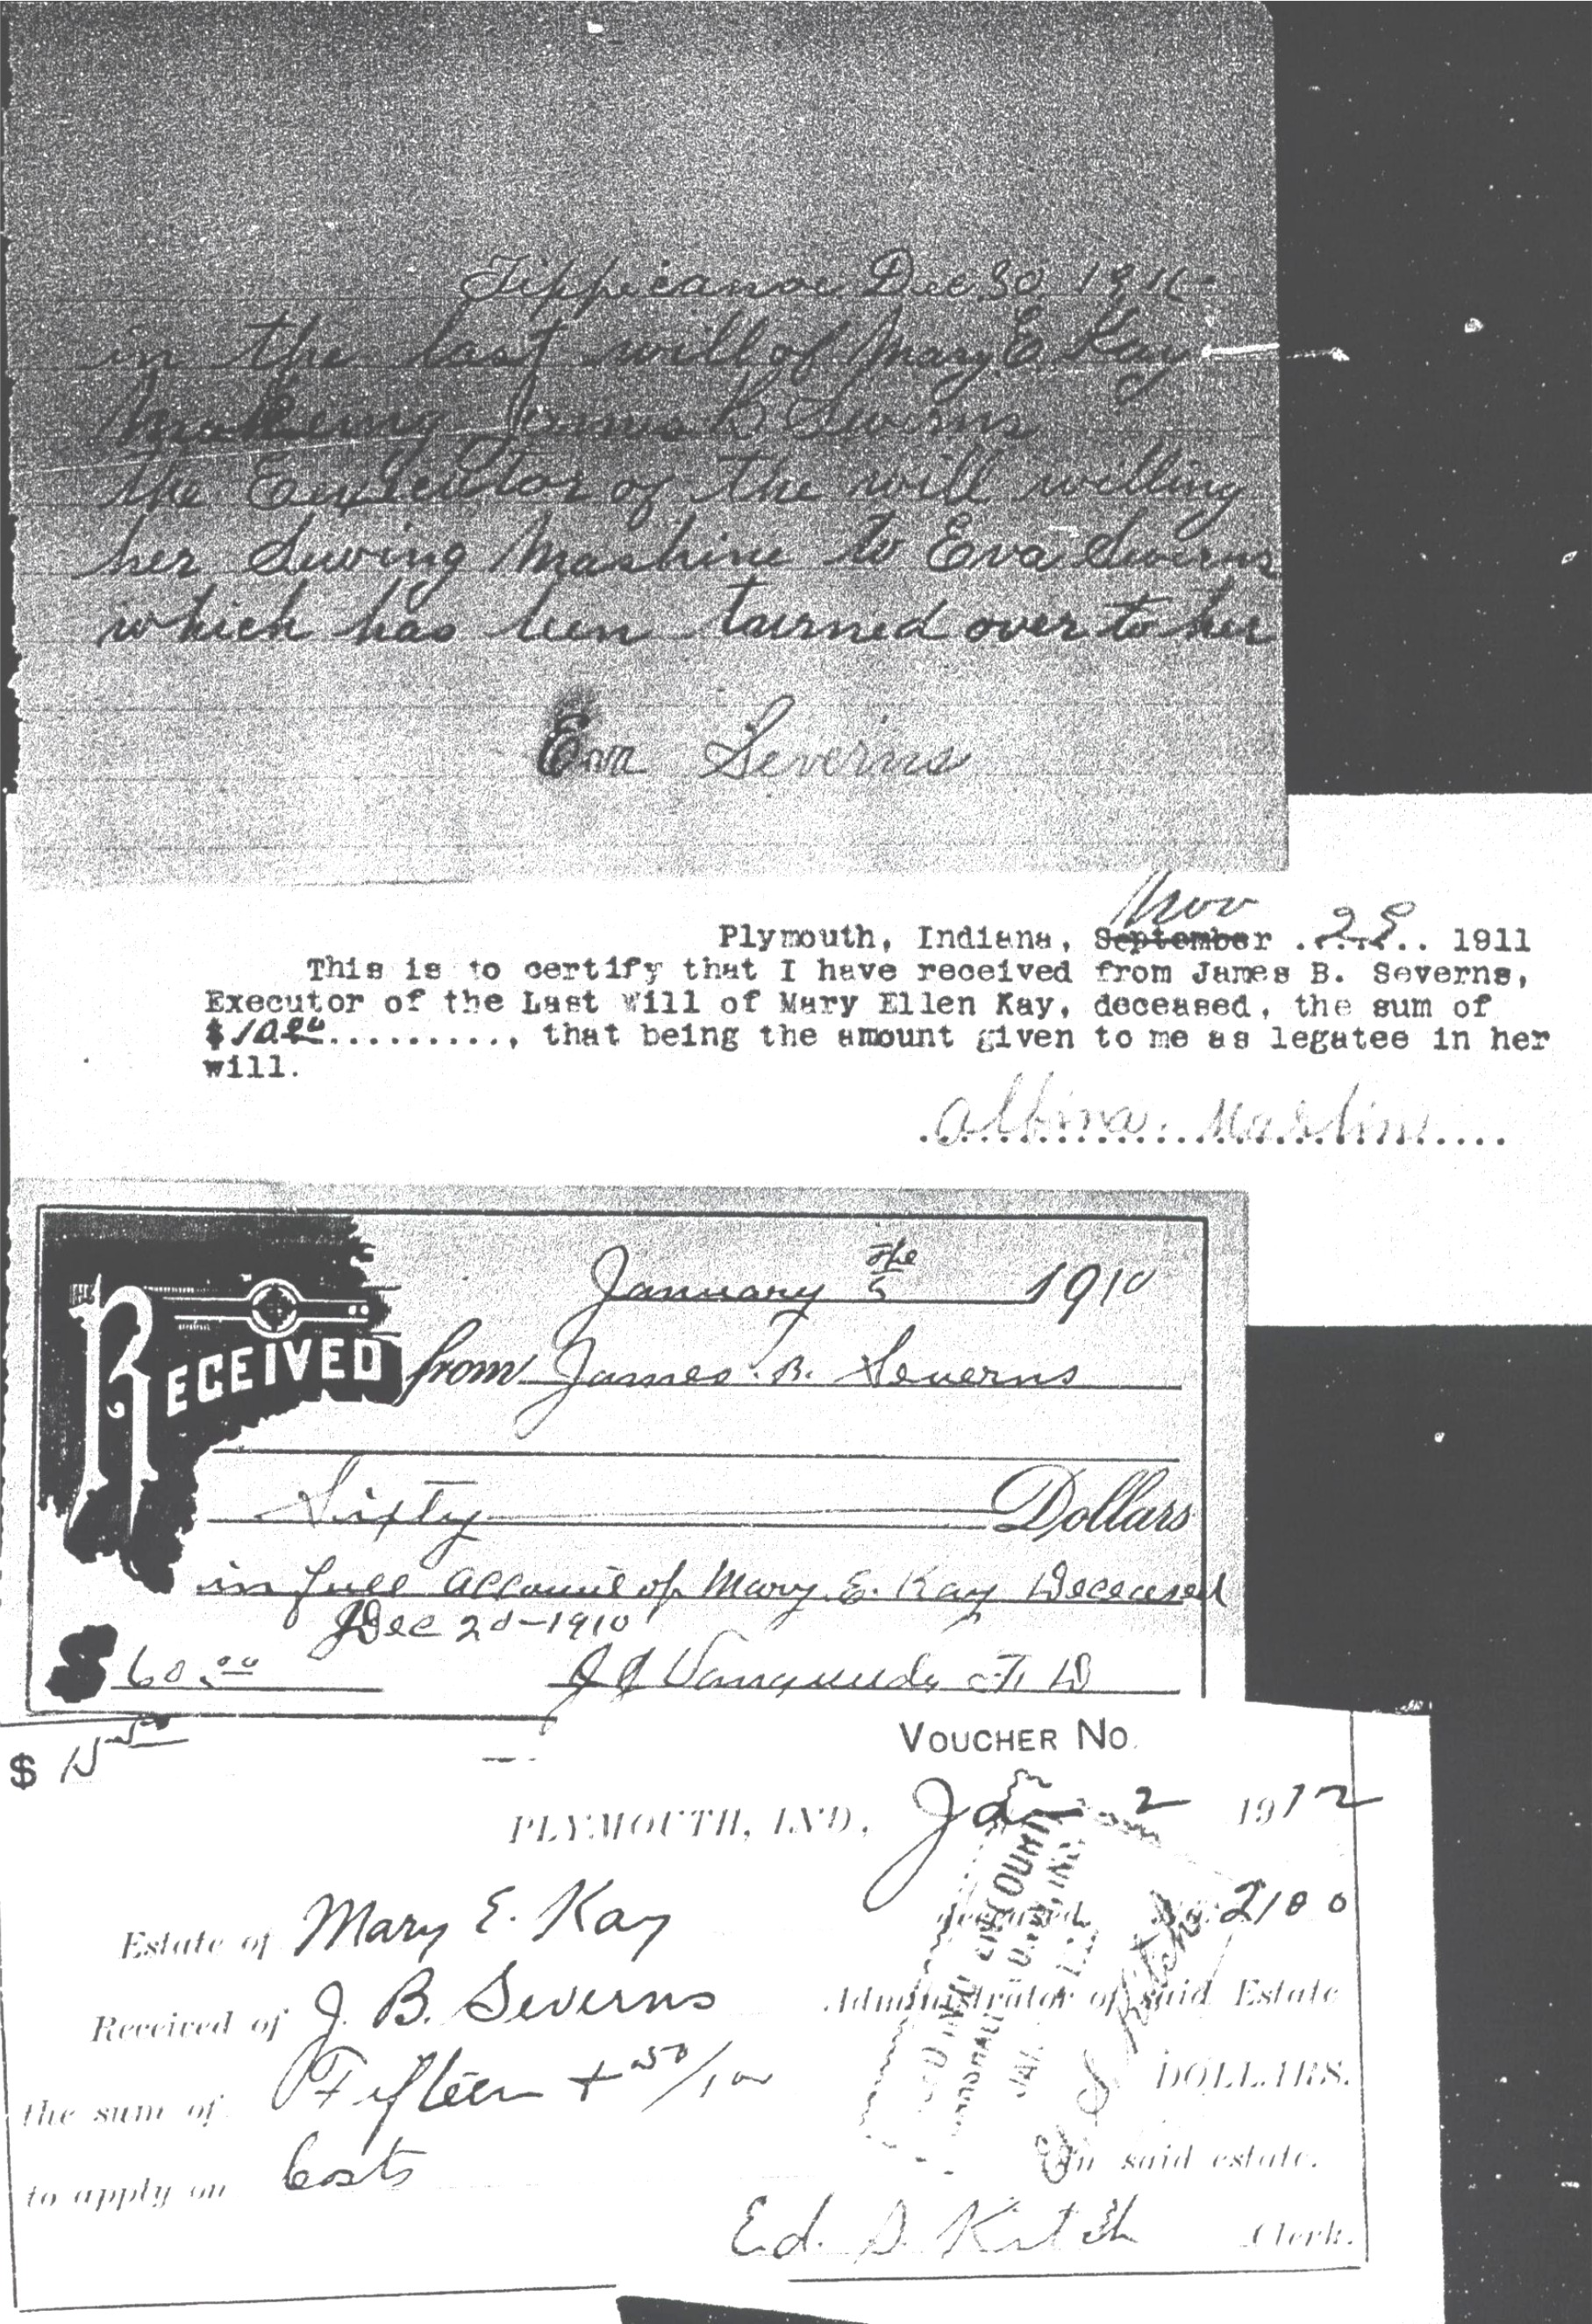 Tippicanoe Dec. 30. 1911
in the last will of Mary E. Kay
Makeing James B Severns
the Executor of the will willing
her Sewing Mashine to Eva Severns
which has been turned over to her
Eva Severns
Nov
Plymouth, Indiana, September ..29.. 1911
This is to certify that I have received from James B. Severns,
Executor of the Last Will of Mary Ellen Kay, deceased, the sum of
$10.00.........., that being the amount given to me as legatee in her
will.
Albina Martin
January the 5 1910
RECEIVED from James. B. Severns
Sixty Dollars
in full account of Mary. E. Kay Deceased
Dec 20-1910
$ 60.00
$ 15.50
VOUCHER NO.
PLYMOUTH, IND., Jan 2 1912
Estate of Mary E. Kay deceased. No. 2180
Received of J. B. Severns Administrator of said Estate
the sum of Fifteen + 50/100 DOLLARS.
to apply on Costs In said estate.
Ed. S. Kitch Clerk.